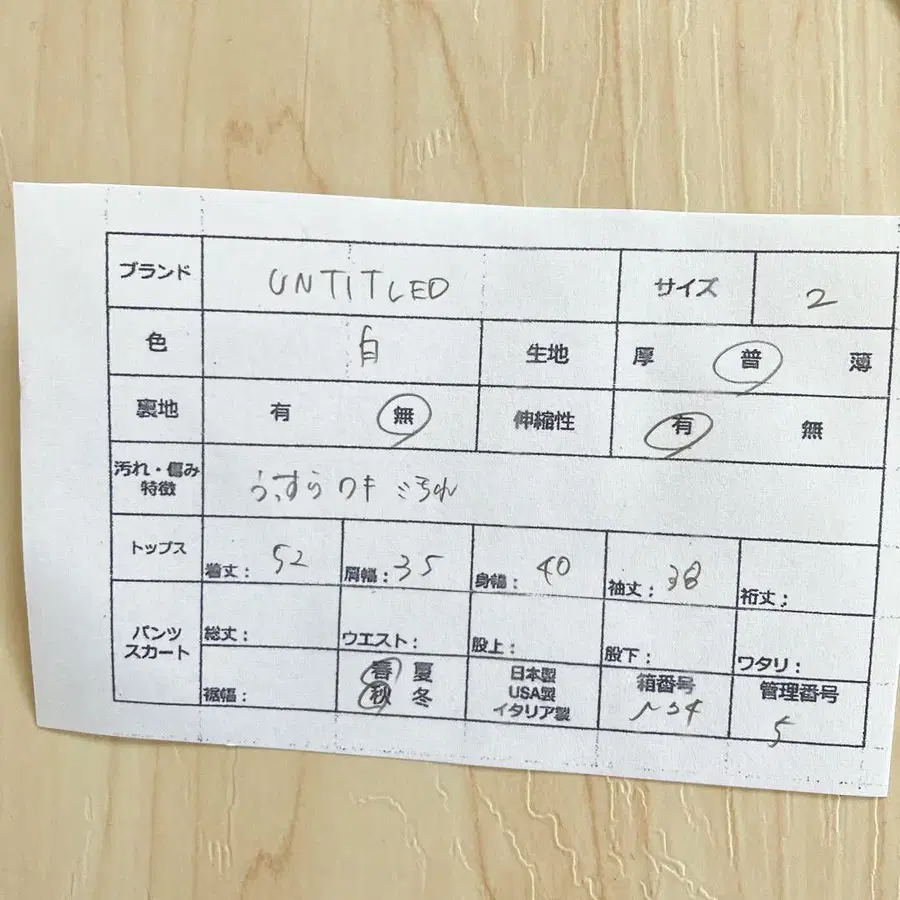 ブランド UNTITLED サイズ 2
色 白 生地 厚 普 薄
裏地 有 無 伸縮性 有 無
汚れ・傷み
特徴 うすら ワキ
トップス 着丈： 52 肩幅： 35 身幅： 40 袖丈： 38 裄丈：
パンツ
スカート 総丈： ウエスト： 股上： 股下： ワタリ：
裾幅： 春 夏
秋 冬
日本製
USA製
イタリア製
箱番号
管理番号
5